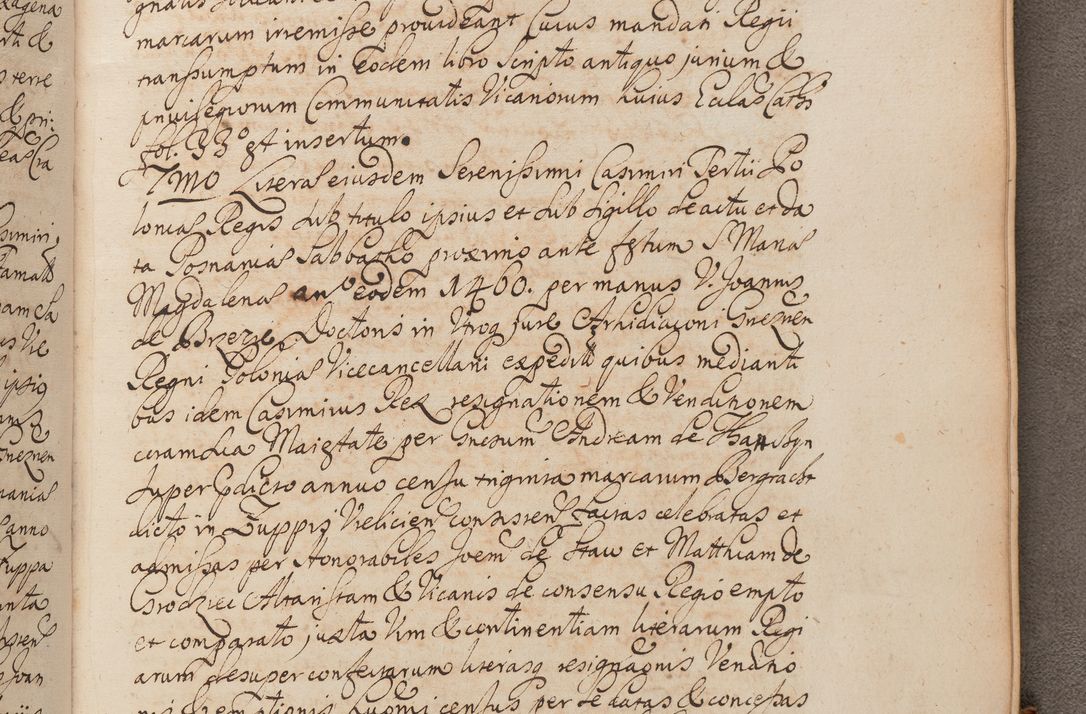 marcarum irremisse provideant Cuius mandati Regii
transsumptum in eodem libro scripto antiquo jurium &
privilegiorum Communitatis Vicariorum huius Eccl'as Cath
fol. 33° est insertum.
7mo Literas eiusdem Serenissimi Casimiri Tertii Po
lonias Regis sub titulo ipsius et sub sigillo de actu et da
ta Posnanias Sabbatho proximo ante festum S Marias
Magdalenas an° eodem 1460. per manus V. Joannis
de Brzezie Doctoris in Vtroq Jure Archidiaconi Gneznen
Regni Polonias Vicecancellarii expeditt quibus medianti
bus idem Casimirus Rex resignationem & Venditionem
coram sua Maiestate per Gnesum Andream de
super Pdicto annuo censu triginta marcarum Bergracht
dicto in Zuppis Velicien consisten factas celebratas et
admissas per Honorabiles Joem de Stav et Matthiam de
Grodziec Altaristam & Vicariis de consensu Regio empto
et comparato juxta Vim & continentiam literarum Regi
arum desuper confectarum literasq resignaonis Venditio
nis & emptionis huomi census per se datas & concessas